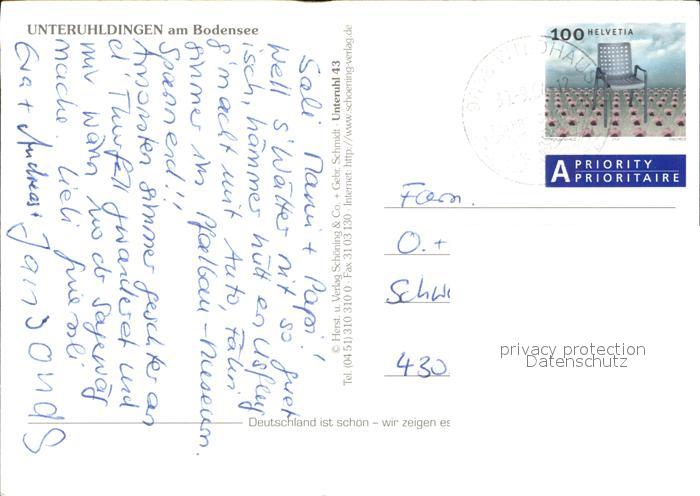 UNTERUHLDINGEN am Bodensee
Sali Mami + Papi!
Well s'Wätter nit so guet
isch, hämmer hütt en Usflug
g'macht mit Auto, Fähri
simmer im Pfalbau-Museum.
Spannend!!
Ansonsten simmer geschter an
d'Thurfäll gwanderet und
mir wän no dr Sagewäg
mache. Liebi Griessli
Eva + Andreas +
Jan
© Herst. u. Verlag Schöning & Co. + Gebr. Schmidt · Unteruhl 43
Tel. (04 51) 310 310 0 · Fax 31 03 130 · Internet: http://www.schoening-verlag.de
Deutschland ist schön – wir zeigen es
100 HELVETIA
WILDHAUS
A PRIORITY
PRIORITAIRE
Fam.
O. +
Schw
430
privacy protection
Datenschutz